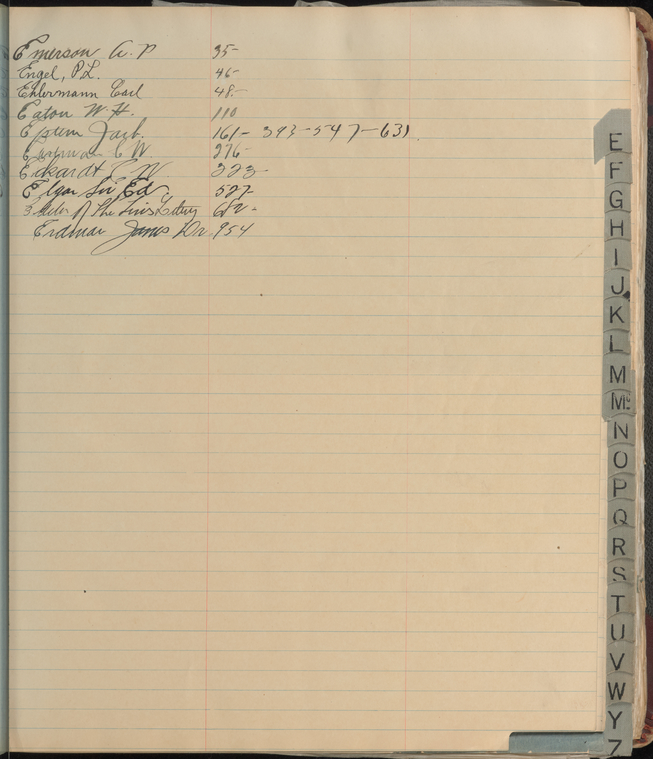 Emerson A. P 35-
Engel, P.L. 46-
Ehlermann Carl 48-
Eaton W. H. 110
Jacob. 161- 393-547-631
C W. 276-
Eckardt C W 323-
Elgar Sir Ed 527-
of the 682-
Erdman James Dr. 954
E
F
G
H
I
J
K
L
M
Mc
N
O
P
Q
R
S
T
U
V
W
Y
Z